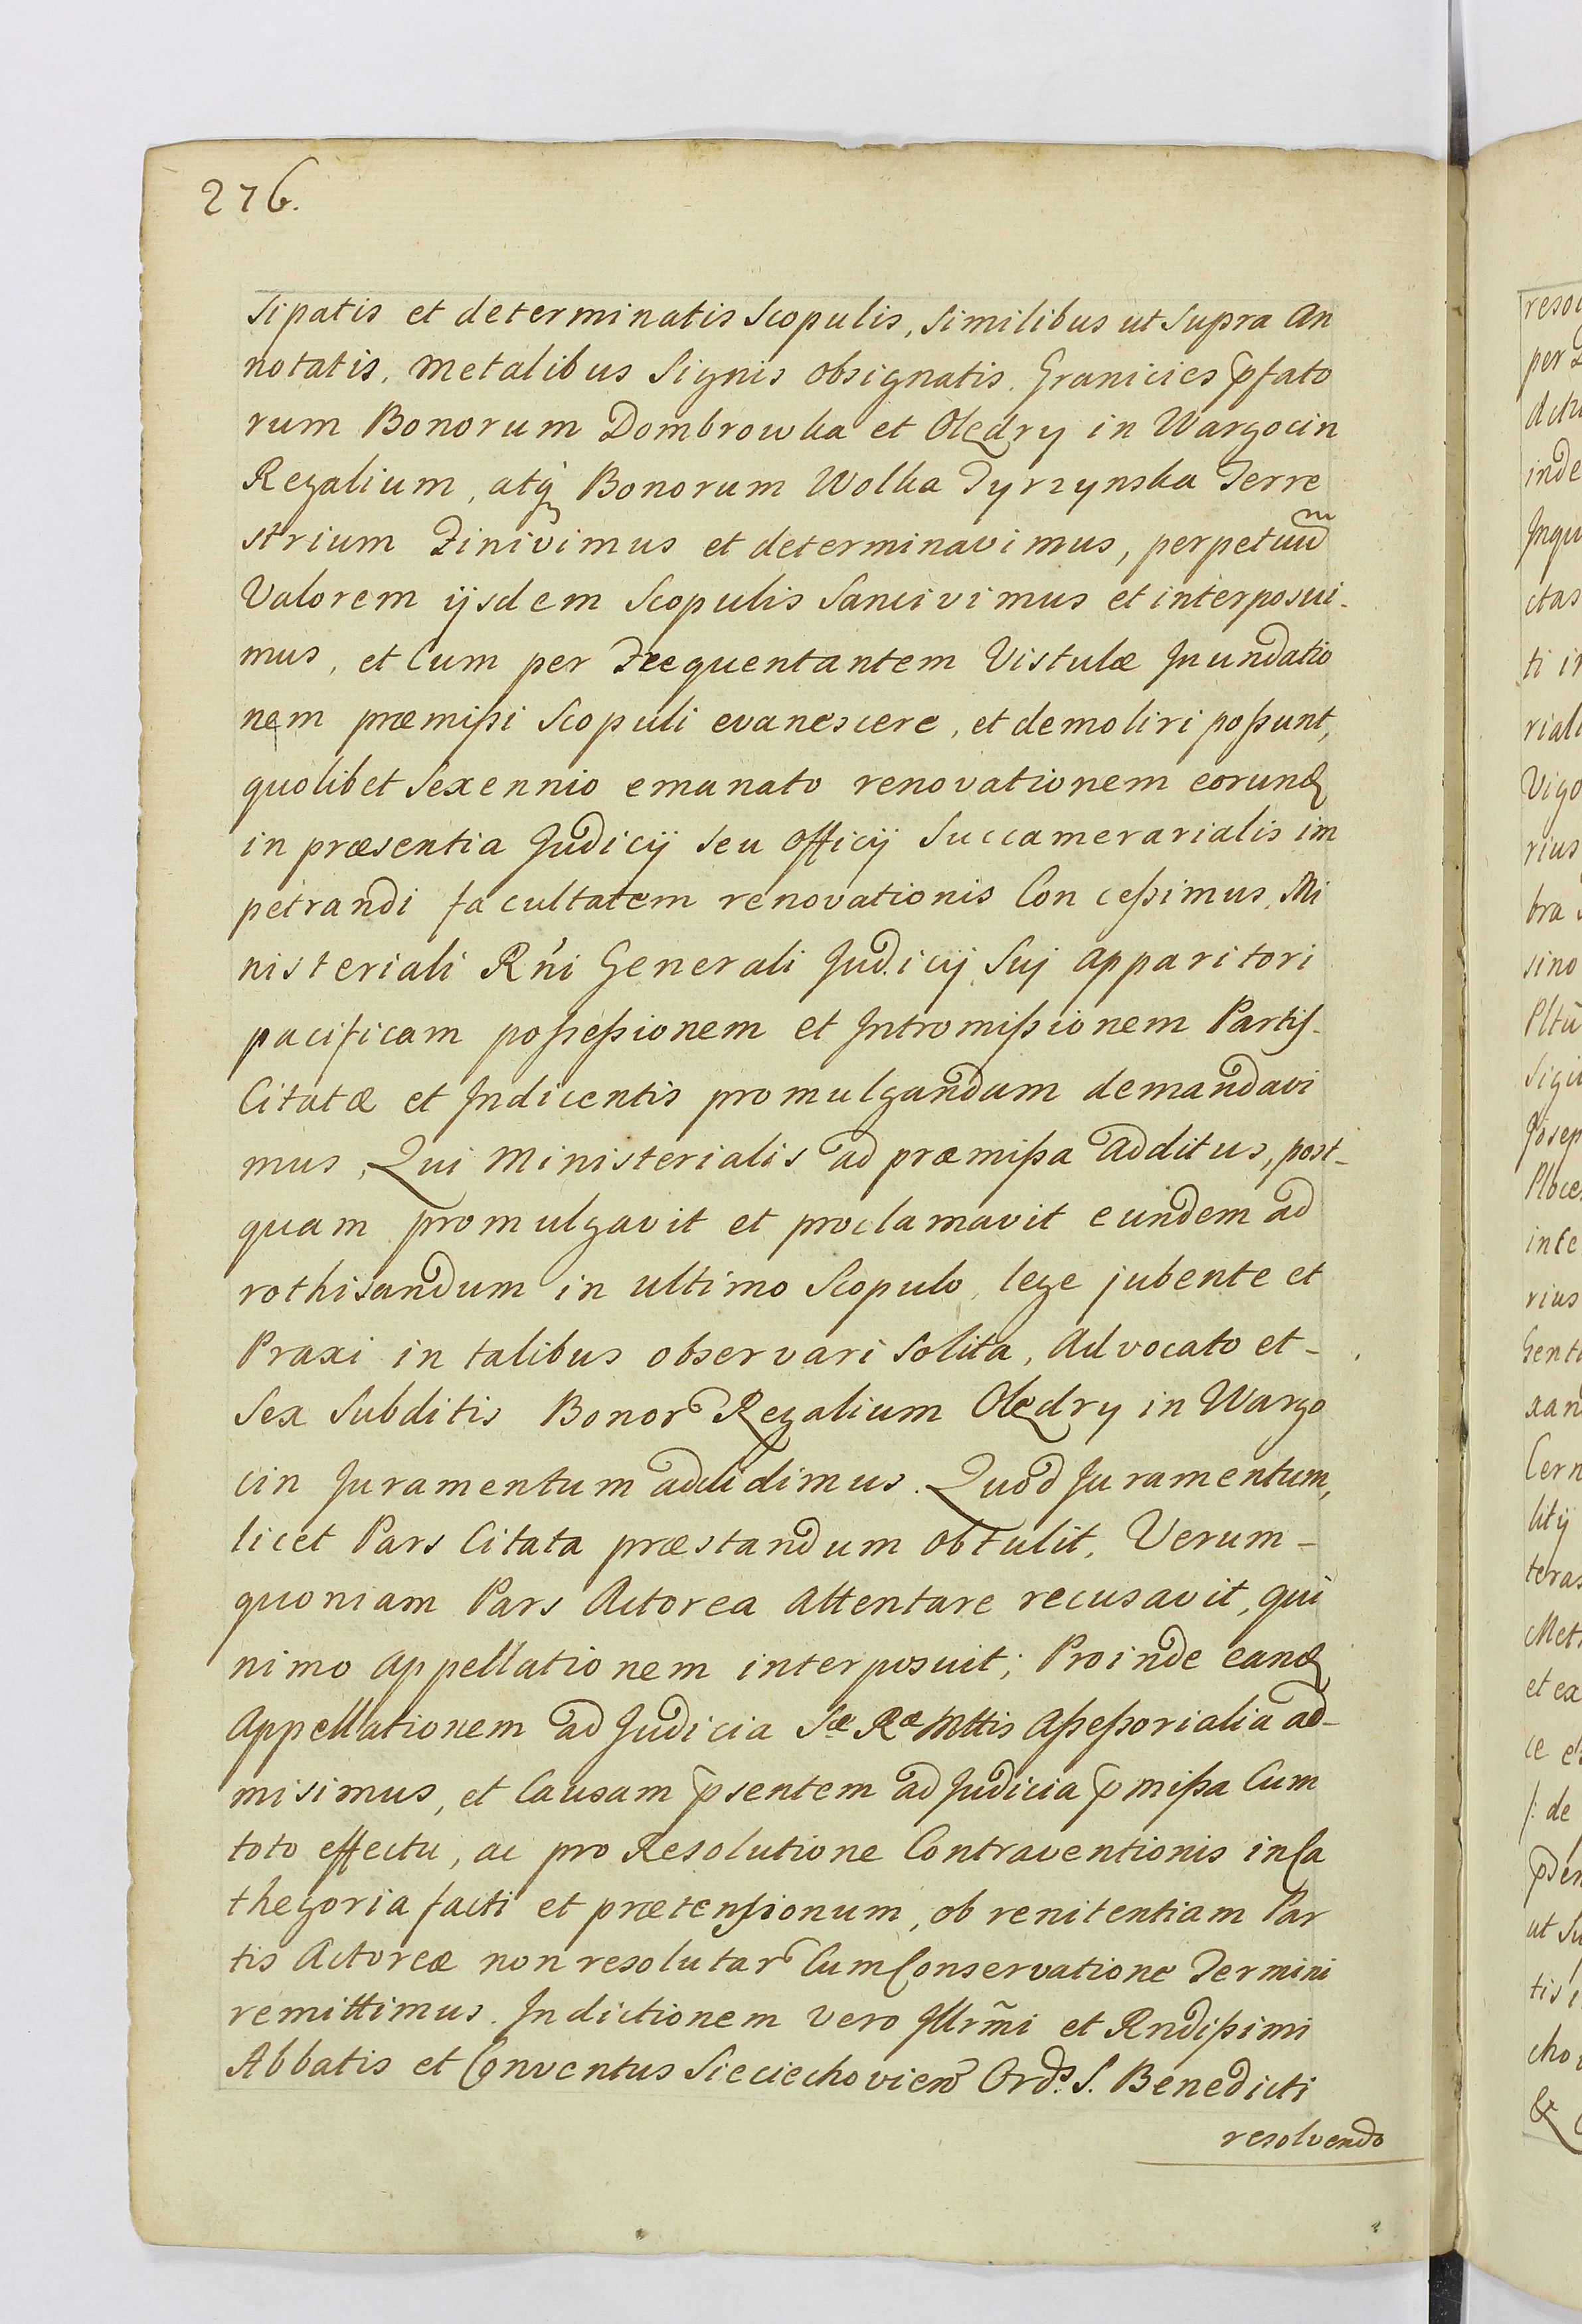 276.
sipatis et determinatis Scopulis, Similibus ut Supra An
notatis, metalibus Signis obsignatis. Granicies p̄fato
rum Bonorum Dombrowka et Olędry in Wargocin
Regalium, atq̀ Bonorum Wolka Tyrzynska Terre
strium Finivimus et determinavimus, perpetuum
Valorem ijsdem Scopulis Sancivimus et interposui-
mus, et Cum per Frequentantem Vistulæ Inundatio
nem præmißi Scopuli evanescere, et demoliri poßunt,
quolibet Sexennio emanato renovationem eorund
in præsentia Judicij seu Officij Succamerarialis im
petrandi facultatem renovationis Conceßimus, Mi
nisteriali Rñi Generali Judicij Suj apparitori
pacificam poßeßionem et Intromißionem Partis-
Citatæ et Indicentis promulgandam demandavi
mus, Qui Ministerialis ad præmißa additus, post-
quam promulgavit et proclamavit eundem ad
rothisandum in ultimo Scopulo, lege jubente et
Praxi in talibus observari Solita, Advocato et-
Sex Subditis Bonor Regalium Olędry in Wargo
cin Juramentum addidimus. Quod Juramentum,
licet Pars Citata præstandum obtulit, Verum-
quoniam Pars Actorea attentare recusavit, qui
nimo appellationem interposuit; Proinde eand
appellationem ad Judicia Sæ Ræ Mttis aßeßorialia ad-
misimus, et Causam p̄sentem ad Judicia p̄mißa Cum
toto effectu, ac pro Resolutione Contraventionis in Ca
thegoria facti et prætensionum, ob renitentiam Par
tis Actoreæ non resolutar Cum Conservatione Termini
remittimus. Indictionem vero Illrm̃i et Rndißimi
Abbatis et Conventus Sieciechovien Ords. S. Benedicti
resolvendo